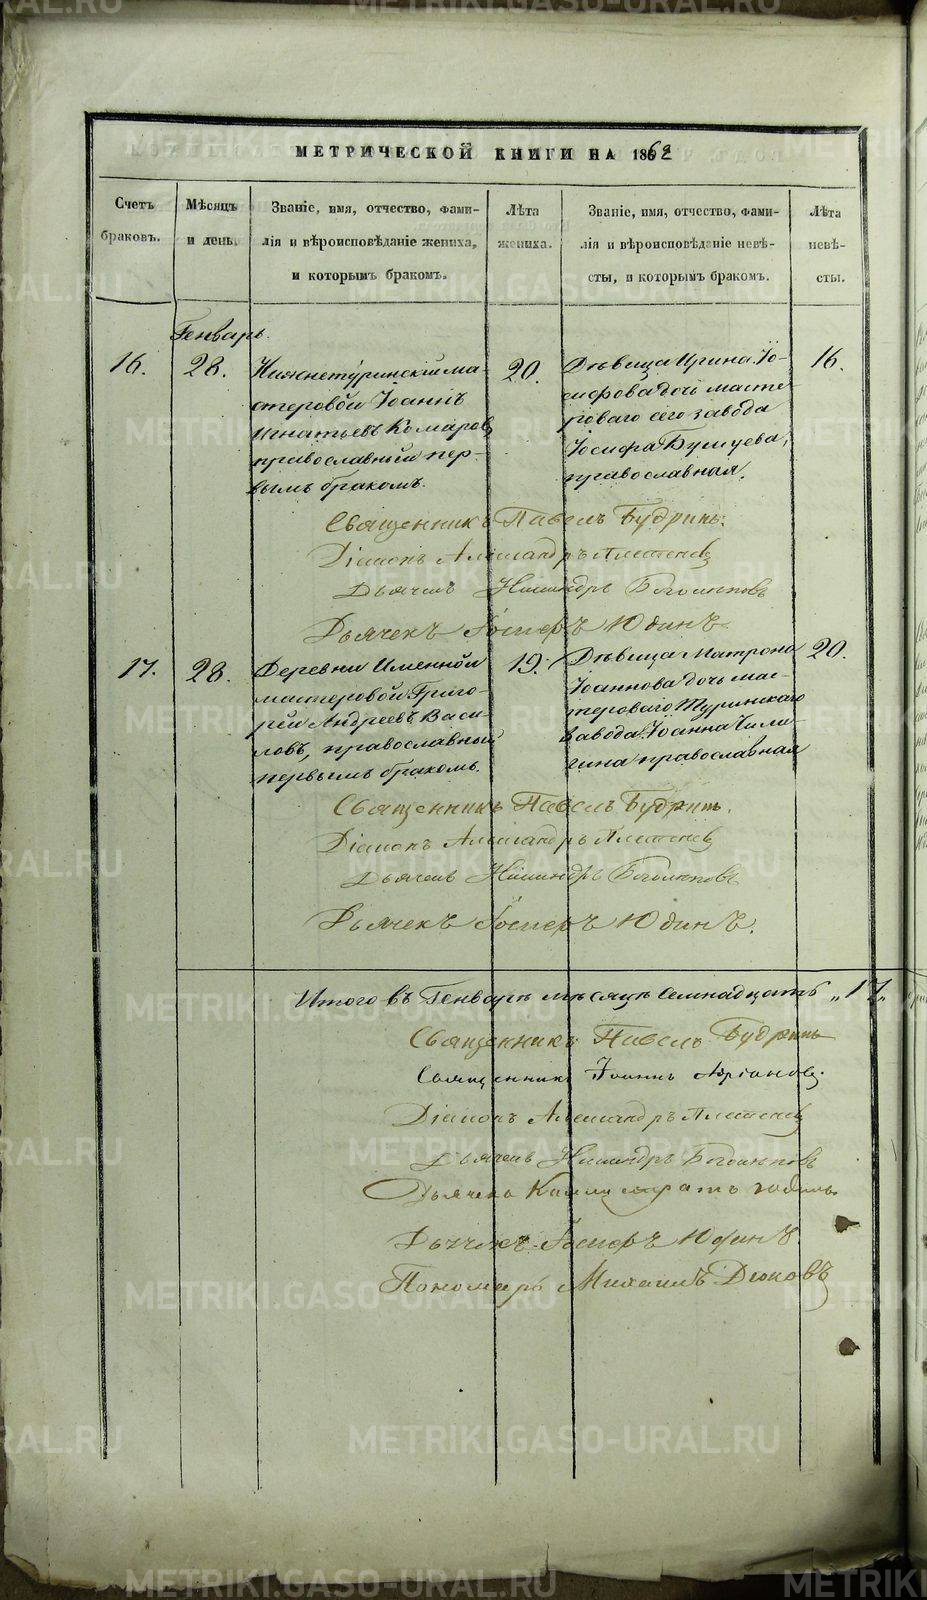 МЕТРИЧЕСКОЙ КНИГИ НА 1862
Счетъ браковъ.
Мѣсяцъ и день.
Званіе, имя, отчество, фами-
лія и вѣроисповѣданіе жениха,
и которымъ бракомъ.
Лѣта жениха.
Званіе, имя, отчество, фами-
лія и вѣроисповѣданіе невѣ-
сты, и которымъ бракомъ.
Лѣта невѣ-
сты.
Генварь.
16.
28.
Нижнетуринскій ма-
стеровой Іоаннъ
Игнатьевъ Комаровъ
православный пер-
вымъ бракомъ.
20.
Дѣвица Ирина Іо-
сифова дочь масте-
роваго сего завода
Іосифа Бушуева,
православная.
16.
Священникъ Павелъ Будринъ.
Діаконъ Александръ
Дьячекъ Никандръ
Дьячекъ Юдинъ
17.
28.
Деревни Именной
мастеровой Григо-
рій Андреевъ Васи-
ловъ, православный
первымъ бракомъ.
19.
Дѣвица Матрона
Іоаннова дочь мас-
тероваго Туринскаго
завода Іоанна
православная
20.
Священникъ Павелъ Будринъ.
Діаконъ Александръ
Дьячекъ Никандръ
Дьячекъ Юдинъ.
Итого въ Генварѣ мѣсяцѣ семнадцать „17„
Священникъ Павелъ Будринъ
Священникъ Іоаннъ
Діаконъ Александръ
Дьячекъ Никандръ
Дьячекъ Каллистратъ
Дьячекъ Юдинъ.
Пономарь Михаилъ Дюковъ
METRIKI.GASO-URAL.RU